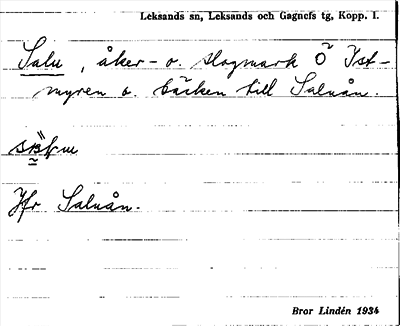 Leksands sn, Leksands och Gagnefs tg, Kopp. I.
Salu, åker- o. slogmark Ö Ist-
myren o. bäcken till Saluån.
Jfr Saluån.
Bror Lindén 1934